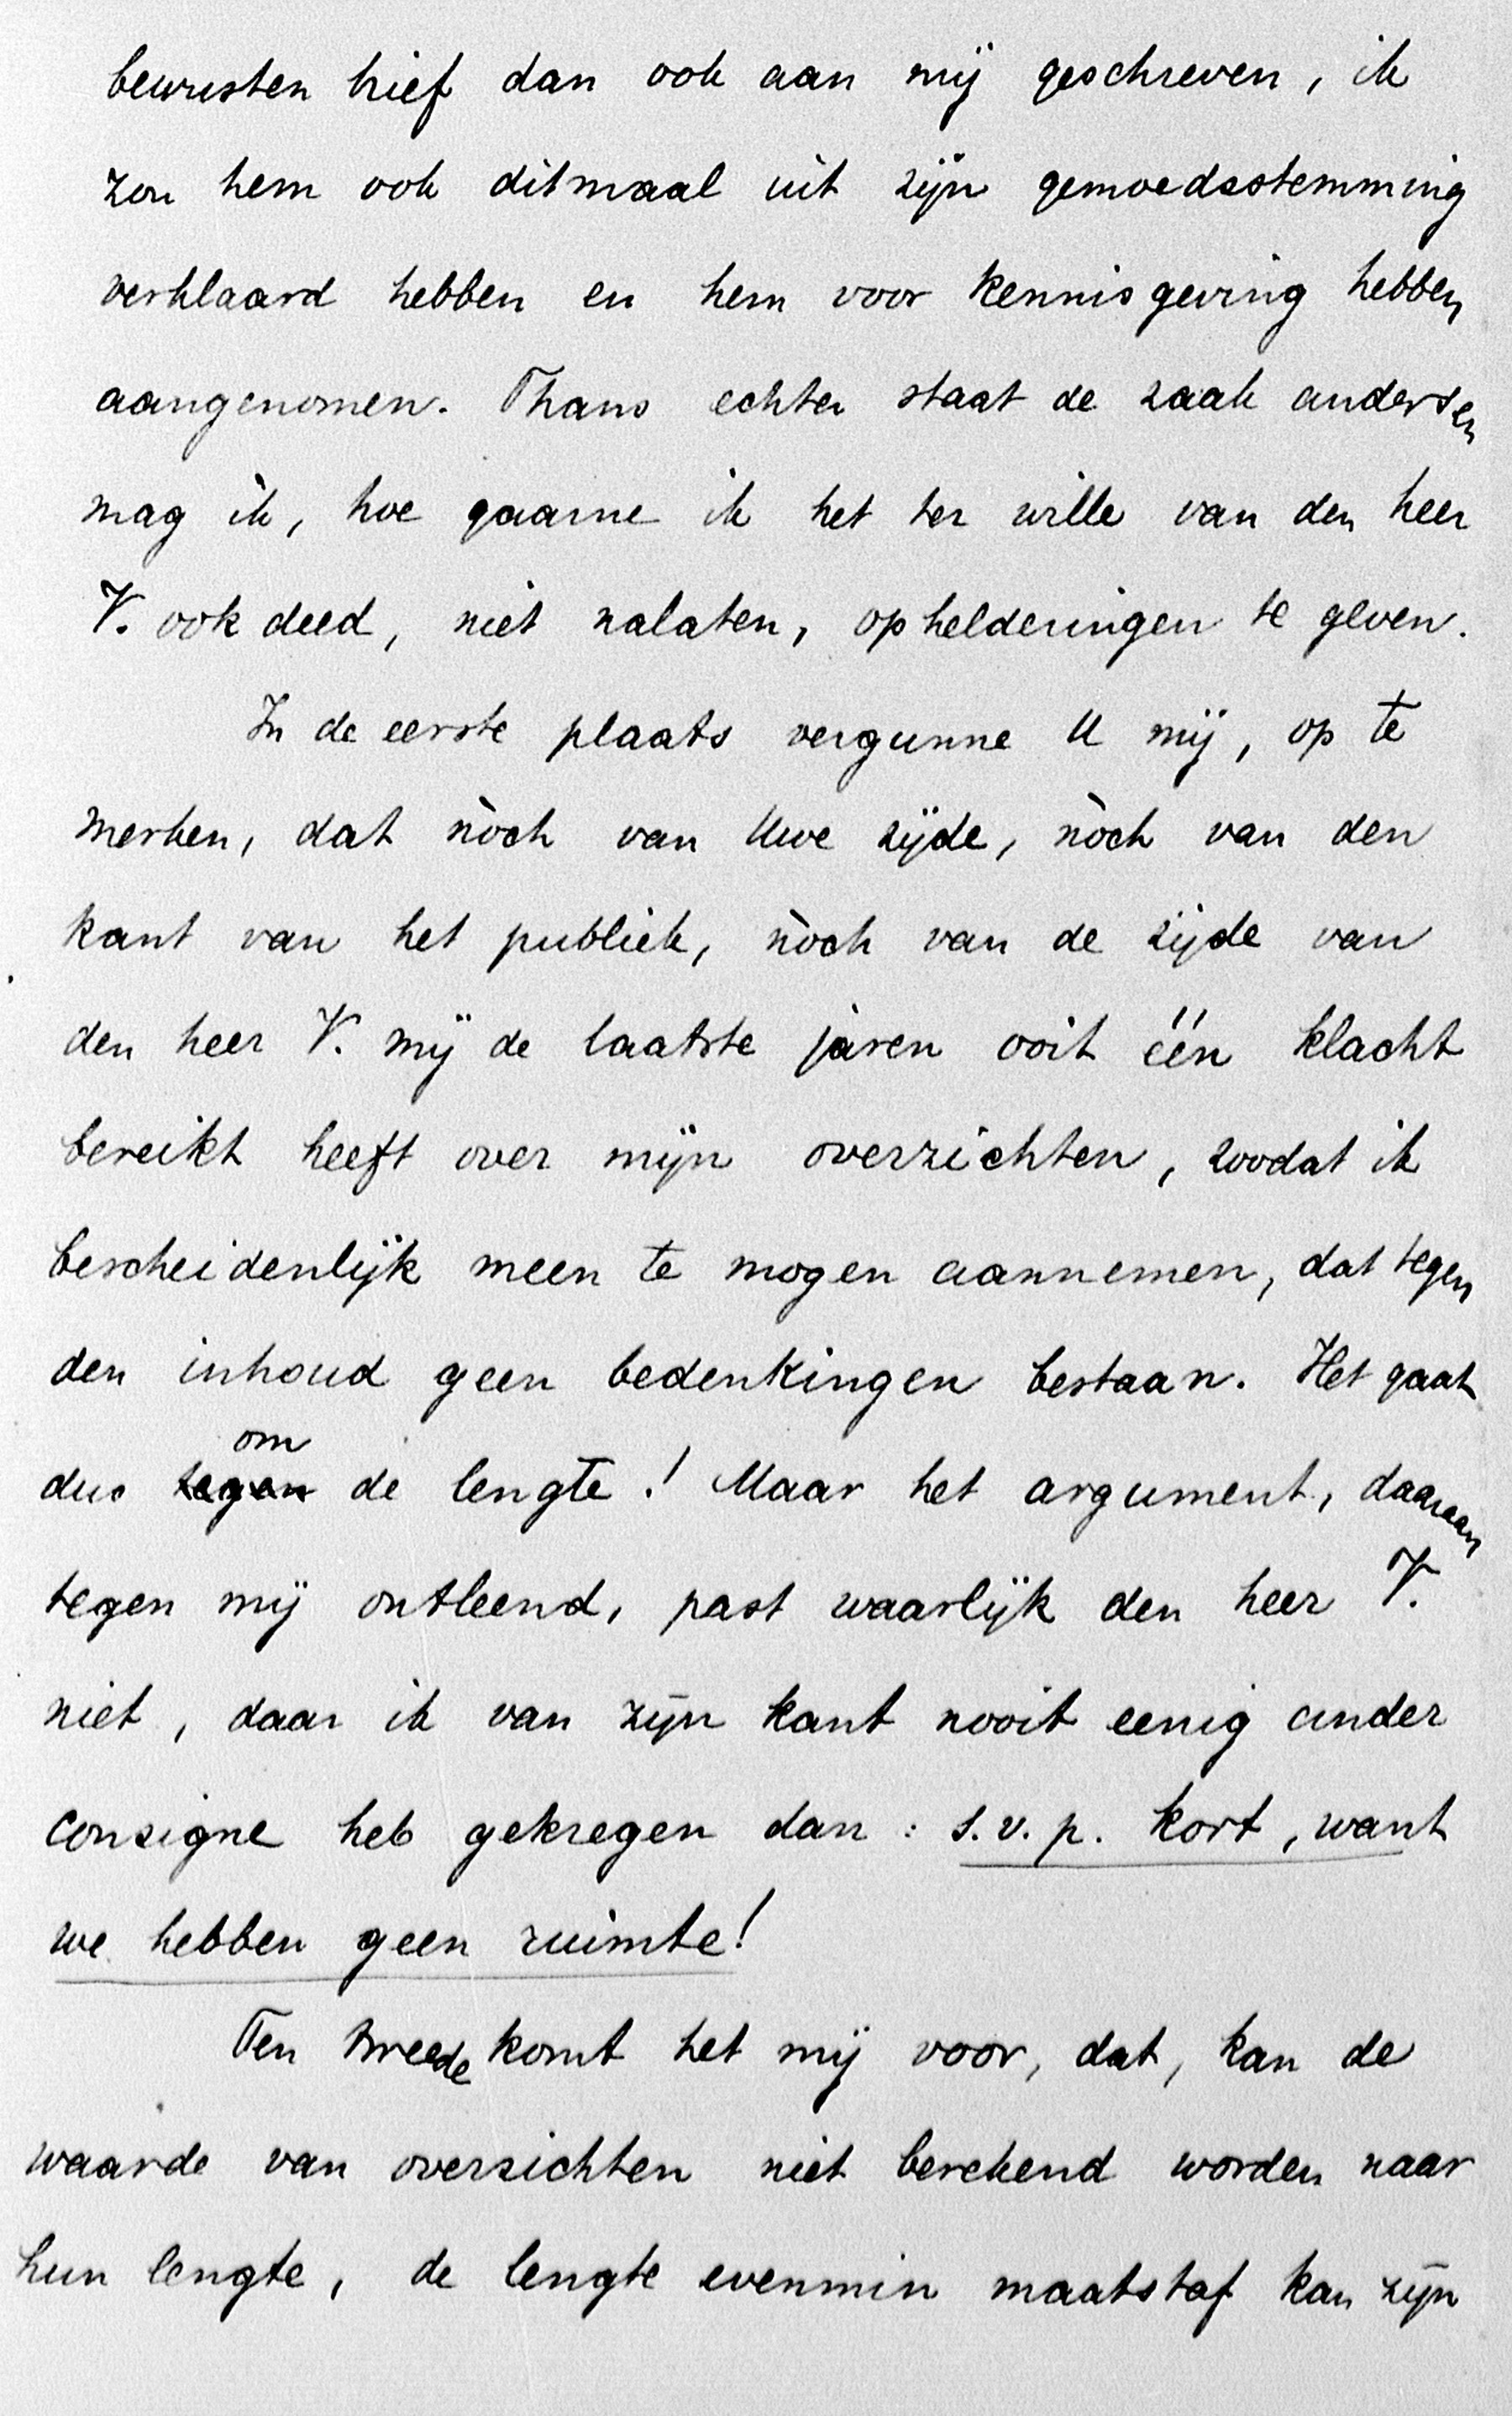 bewusten brief dan ook aan mij geschreven, ik
zou hem ook ditmaal uit zijn gemoedsstemming
verklaard hebben en hem voor kennisgeving hebben
aangenomen. Thans echter staat de zaak anders en
mag ik, hoe gaarne ik het ter wille van den heer
V. ook deed, niet nalaten, ophelderingen te geven.
In de eerste plaats vergunne U mij, op te
merken, dat nòch van Uwe zijde, nòch van den
kant van het publiek, nòch van de zijde van
den heer V. mij de laatste jaren ooit één klacht
bereikt heeft over mijn overzichten, zoodat ik
bescheidenlijk meen te mogen aannemen, dat tegen
den inhoud geen bedenkingen bestaan. Het gaat
om
dus tegen de lengte! Maar het argument, daaraan
tegen mij ontleend, past waarlijk den heer V.
niet, daar ik van zijn kant nooit eenig ander
consigne heb gekregen dan: s.v.p. kort, want
we hebben geen ruimte!
Ten tweede komt het mij voor, dat, kan de
waarde van overzichten niet berekend worden naar
hun lengte, de lengte evenmin maatstaf kan zijn